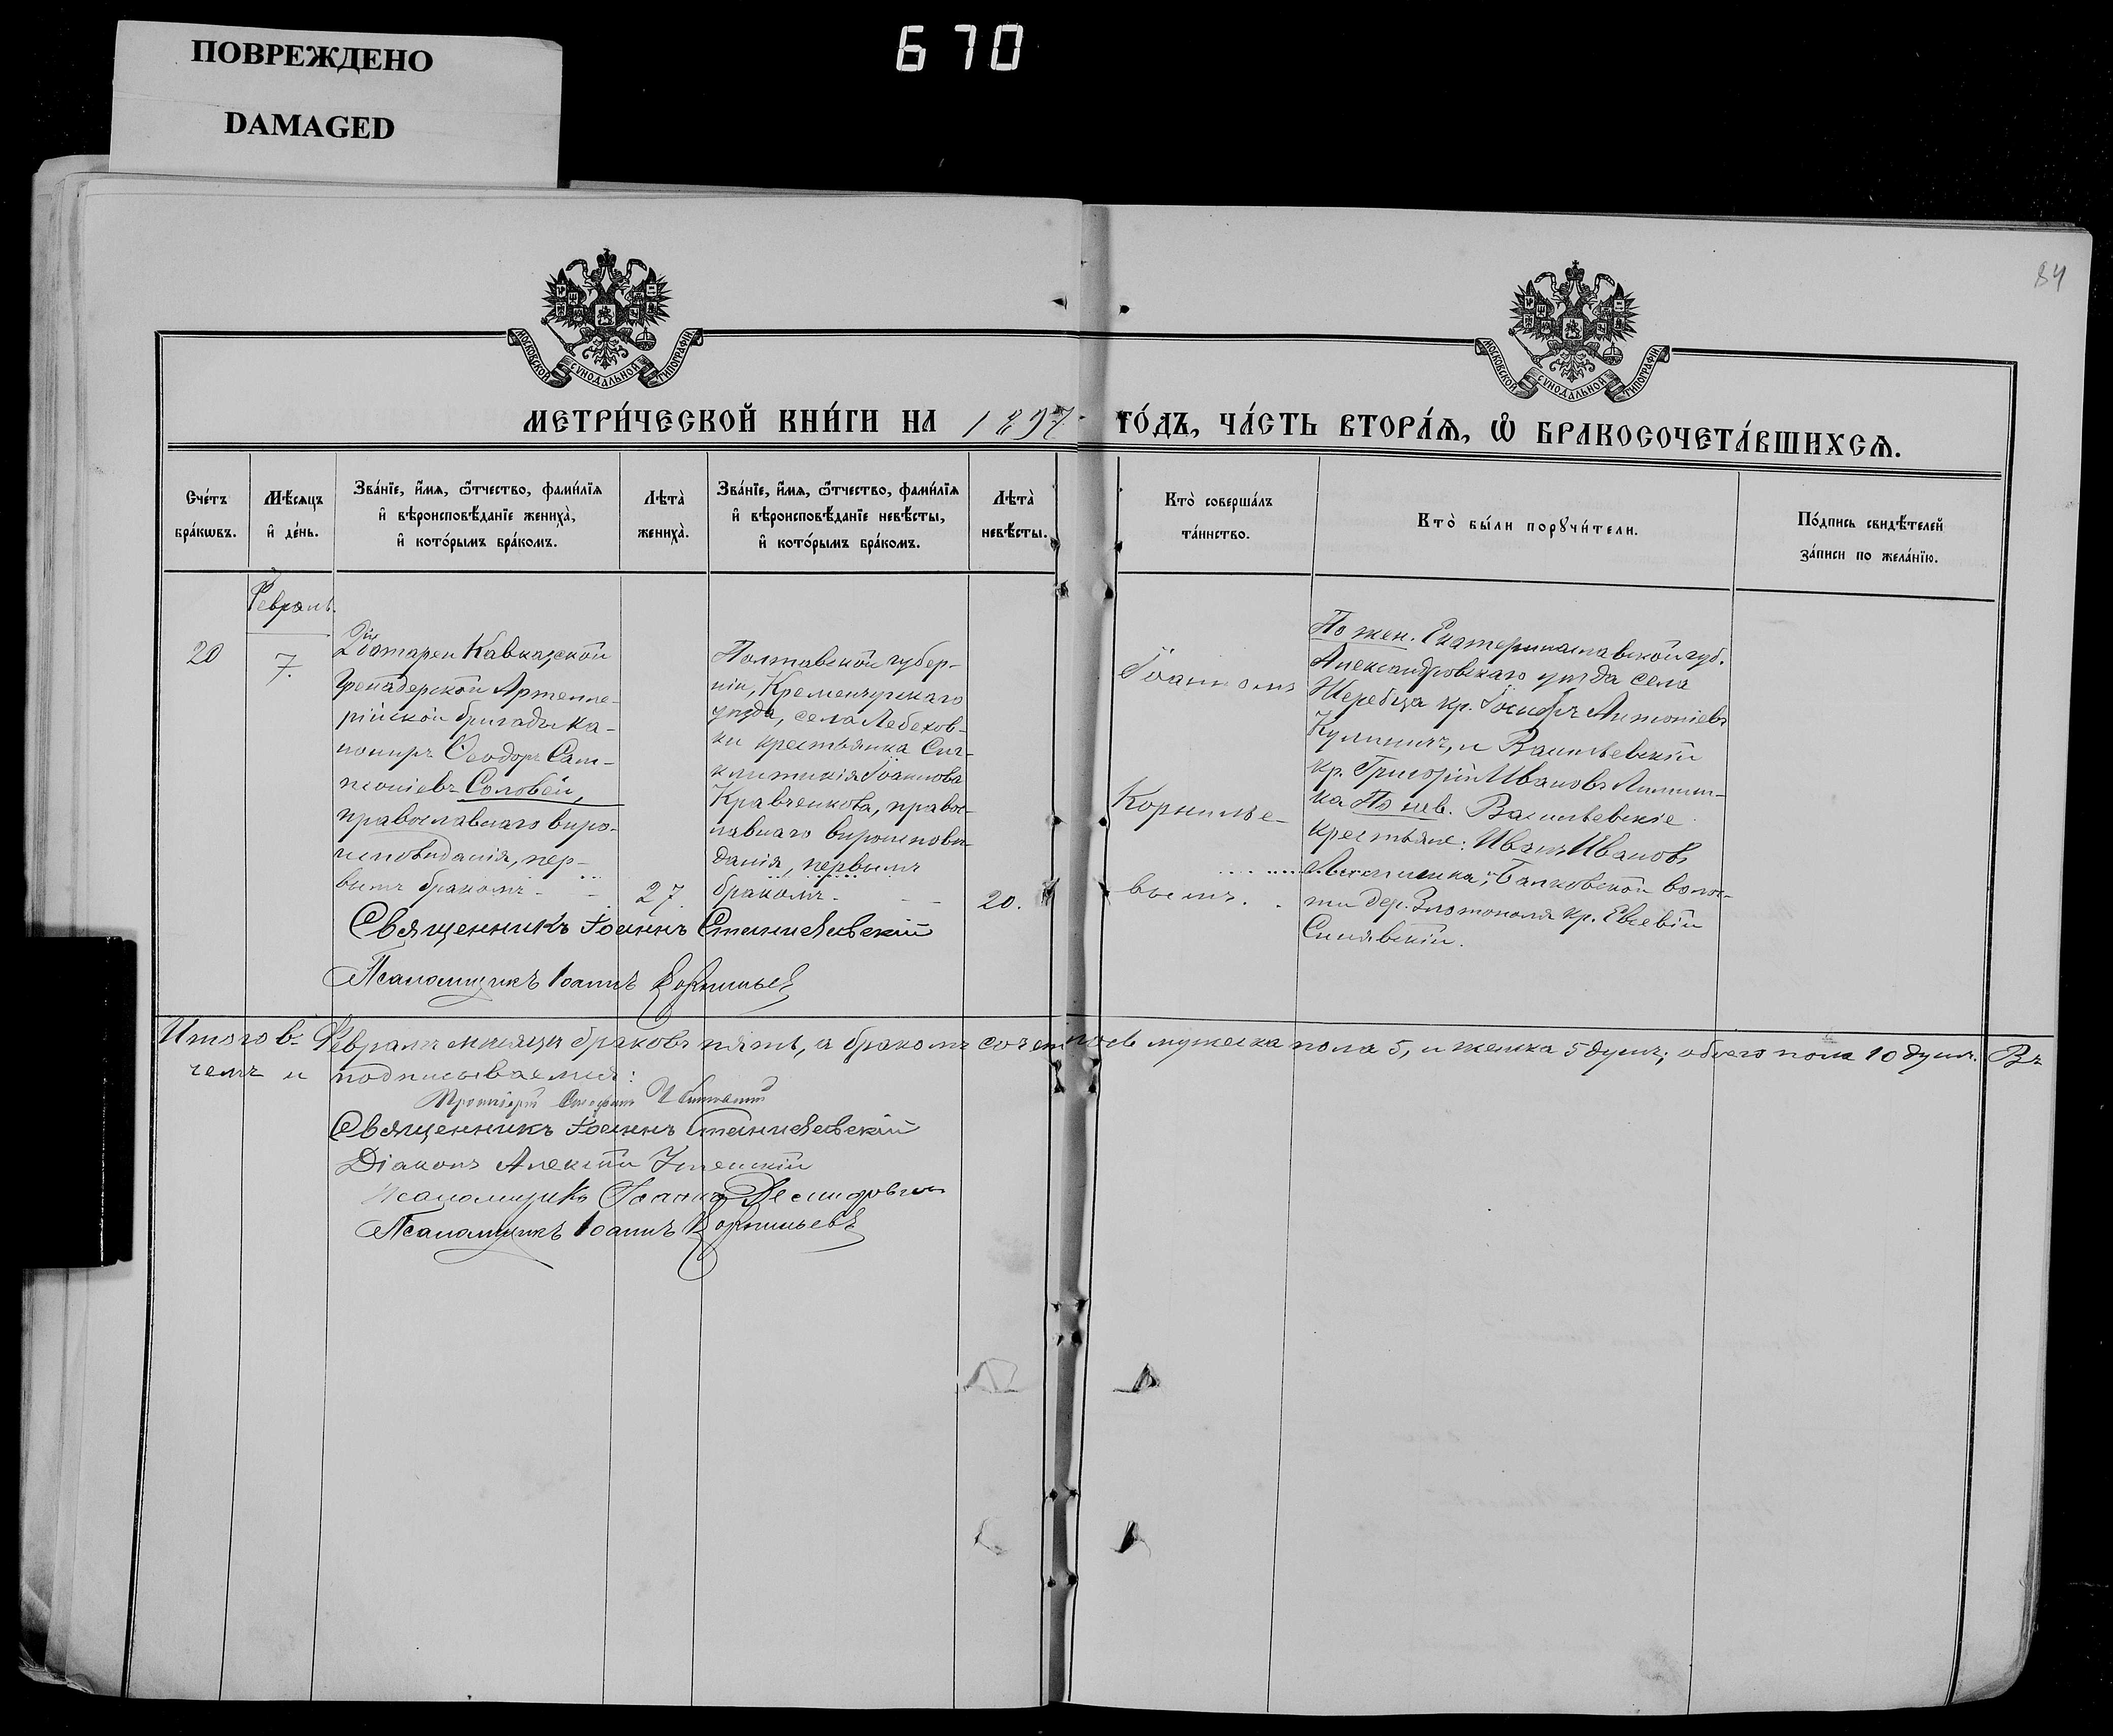 ПОВРЕЖДЕНО
DAMAGED
670
84
МОСКОВСКОЙ СѴНОДАЛЬНОЙ ТИПОГРАФІИ
МОСКОВСКОЙ СѴНОДАЛЬНОЙ ТИПОГРАФІИ
МЕТРИ́ЧЕСКОЙ КНИ́ГИ НА 1897 ГО́ДЪ, ЧА́СТЬ ВТОРА́Ѧ, Ѽ БРАКОСОЧЕТА́ВШИХСѦ.
Сче́тъ бра́кѡвъ.
Мѣ́сѧцъ и҆ де́нь.
Зва́нїе, и҆́мѧ, ѻ҆́тчество, фами́лїѧ и҆ вѣроисповѣ́данїе жениха̀, и҆ кото́рымъ бра́комъ.
Лѣта̀ жениха̀.
Зва́нїе, и҆́мѧ, ѻ҆́тчество, фами́лїѧ и҆ вѣроисповѣ́данїе невѣ́сты, и҆ кото́рымъ бра́комъ.
Лѣта̀ невѣ́сты.
Кто̀ соверша́лъ та́инство.
Кто̀ бы́ли порꙋчи́тели.
По́дпись свидѣ́телей за́писи по жела́нїю.
Февраль.
20
7.
Батареи Кавказской
Гренадерской Артилле-
рійской бригады ка-
нониръ Ѳеодоръ Сам-
псоніевъ Соловей,
православнаго вѣро-
исповѣданія, пер-
вымъ бракомъ
27.
Полтавской губер-
ніи, Кременчугскаго
уѣзда, села
ки крестьянка Син-
клитикія Іоаннова
Кравченкова, правос-
лавнаго вѣроисповѣ-
данія, первымъ
бракомъ
20.
Іоанномъ
Корнилье-
вымъ.
По жен. Екатеринославской губ.
Александровскаго уѣзда села
Жеребца кр. Іосифъ Антоніевъ
Кулиничъ, и Васильевскій
кр. Григорій Ивановъ
ка По нев. Васильевскіе
крестьяне: Иванъ Ивановъ
Балковской волос-
ти дер. Златополя кр. Евсевій
Синявскій.
Священникъ Іоаннъ Станиславскій
Псаломщикъ Іоаннъ Корнильевъ
Итого въ Февралѣ мѣсяцѣ браковъ пять, а бракомъ сочеталось мужеска пола 5, и женска 5 душъ; обоего пола 10 душъ. Въ
чемъ и подписываемся:
Протоіерей
Священникъ Іоаннъ Станиславскій
Діаконъ Алексій Успенскій
Псаломщикъ Іоаннъ
Псаломщикъ Іоаннъ Корнильевъ